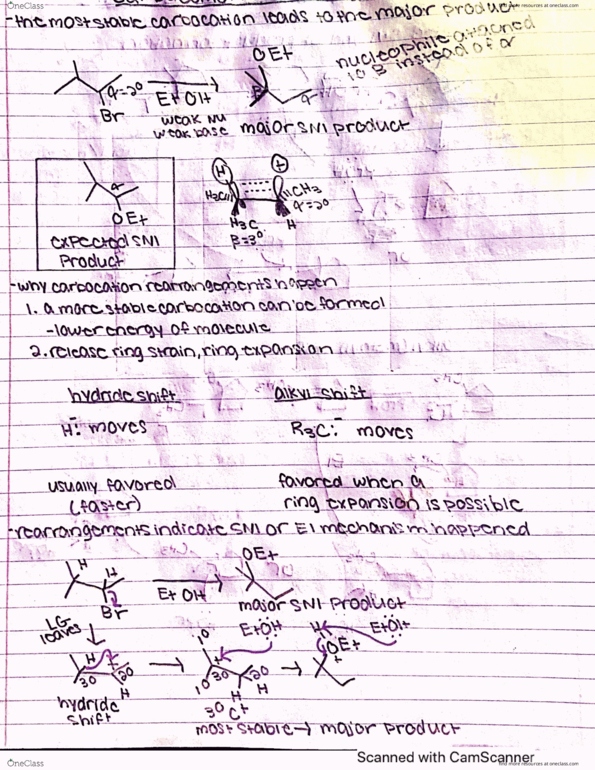 OneClass
-the most stable carbocation leads to the major product
find more resources at oneclass.com
nucleophile attached
to β instead of α
OEt
α=2°
Br
EtOH
weak Nu
weak base
β
α
major SN1 product
α
OEt
expected SN1
product
H
+
H₃C
CH₃
α=2°
H₃C
β=3°
H
-why carbocation rearrangements happen
1. a more stable carbocation can be formed
-lower energy of molecule
2. release ring strain, ring expansion
hydride shift
alkyl shift
H:⁻ moves
R₃C:⁻ moves
usually favored
(faster)
favored when a
ring expansion is possible
-rearrangements indicate SN1 or E1 mechanism happened
H
H
Br
EtOH
OEt
major SN1 product
LG
leaves
H
3°
+
2°
H
hydride
shift
1°
EtÖH
+
1°
3°
2°
H
H
3° C+
H
OEt
+
EtÖH
most stable → major product
Scanned with CamScanner
OneClass
find more resources at oneclass.com